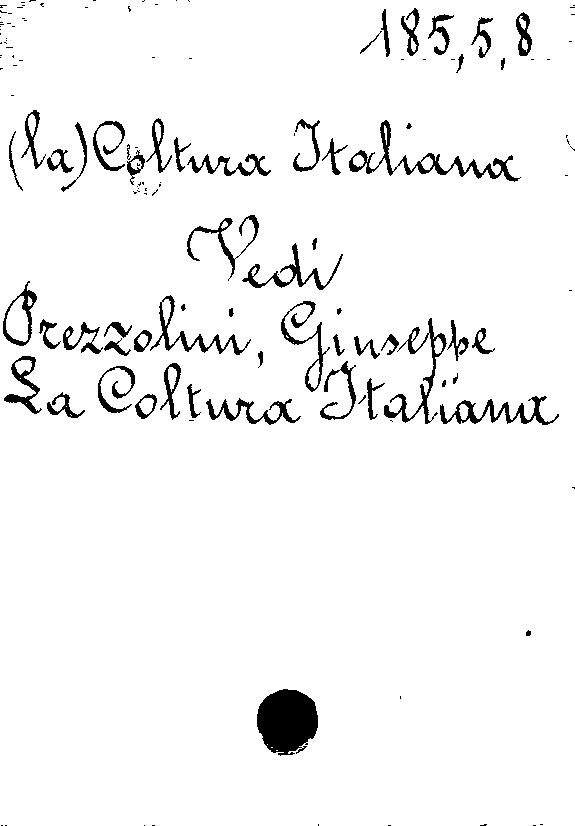 185,5,8
(la) Coltura Italiana
Vedi
Prezzolini, Giuseppe
La Coltura Italiana